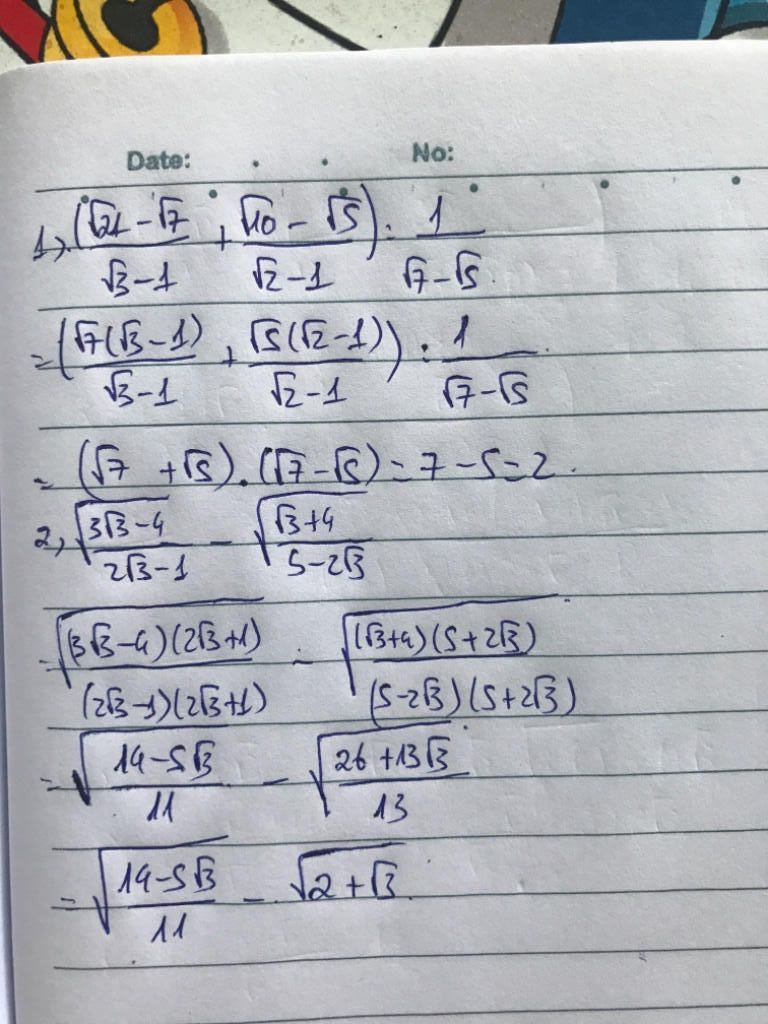 Date: No:
1, (√21 - √7)/(√3 - 1) + (√10 - √5)/(√2 - 1)) : 1/(√7 - √5)
= (√7(√3 - 1)/(√3 - 1) + √5(√2 - 1)/(√2 - 1)) : 1/(√7 - √5)
= (√7 + √5) . (√7 - √5) = 7 - 5 = 2.
2, √((3√3 - 4)/(2√3 - 1)) - √((√3 + 4)/(5 - 2√3))
= √((3√3 - 4)(2√3 + 1)/(2√3 - 1)(2√3 + 1)) - √((√3 + 4)(5 + 2√3)/(5 - 2√3)(5 + 2√3))
= √((14 - 5√3)/11) - √((26 + 13√3)/13)
= √((14 - 5√3)/11) - √(2 + √3)